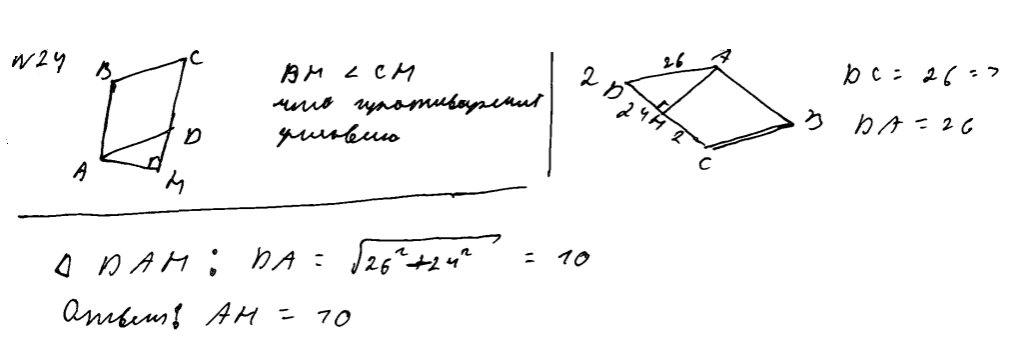 N24
B
C
D
A
M
DM < CM
что противоречит
условию
2
26
A
D
24
M
2
B
C
DC = 26 =>
DA = 26
Δ DAM : DA = √26² + 24² = 10
Ответ: AM = 10